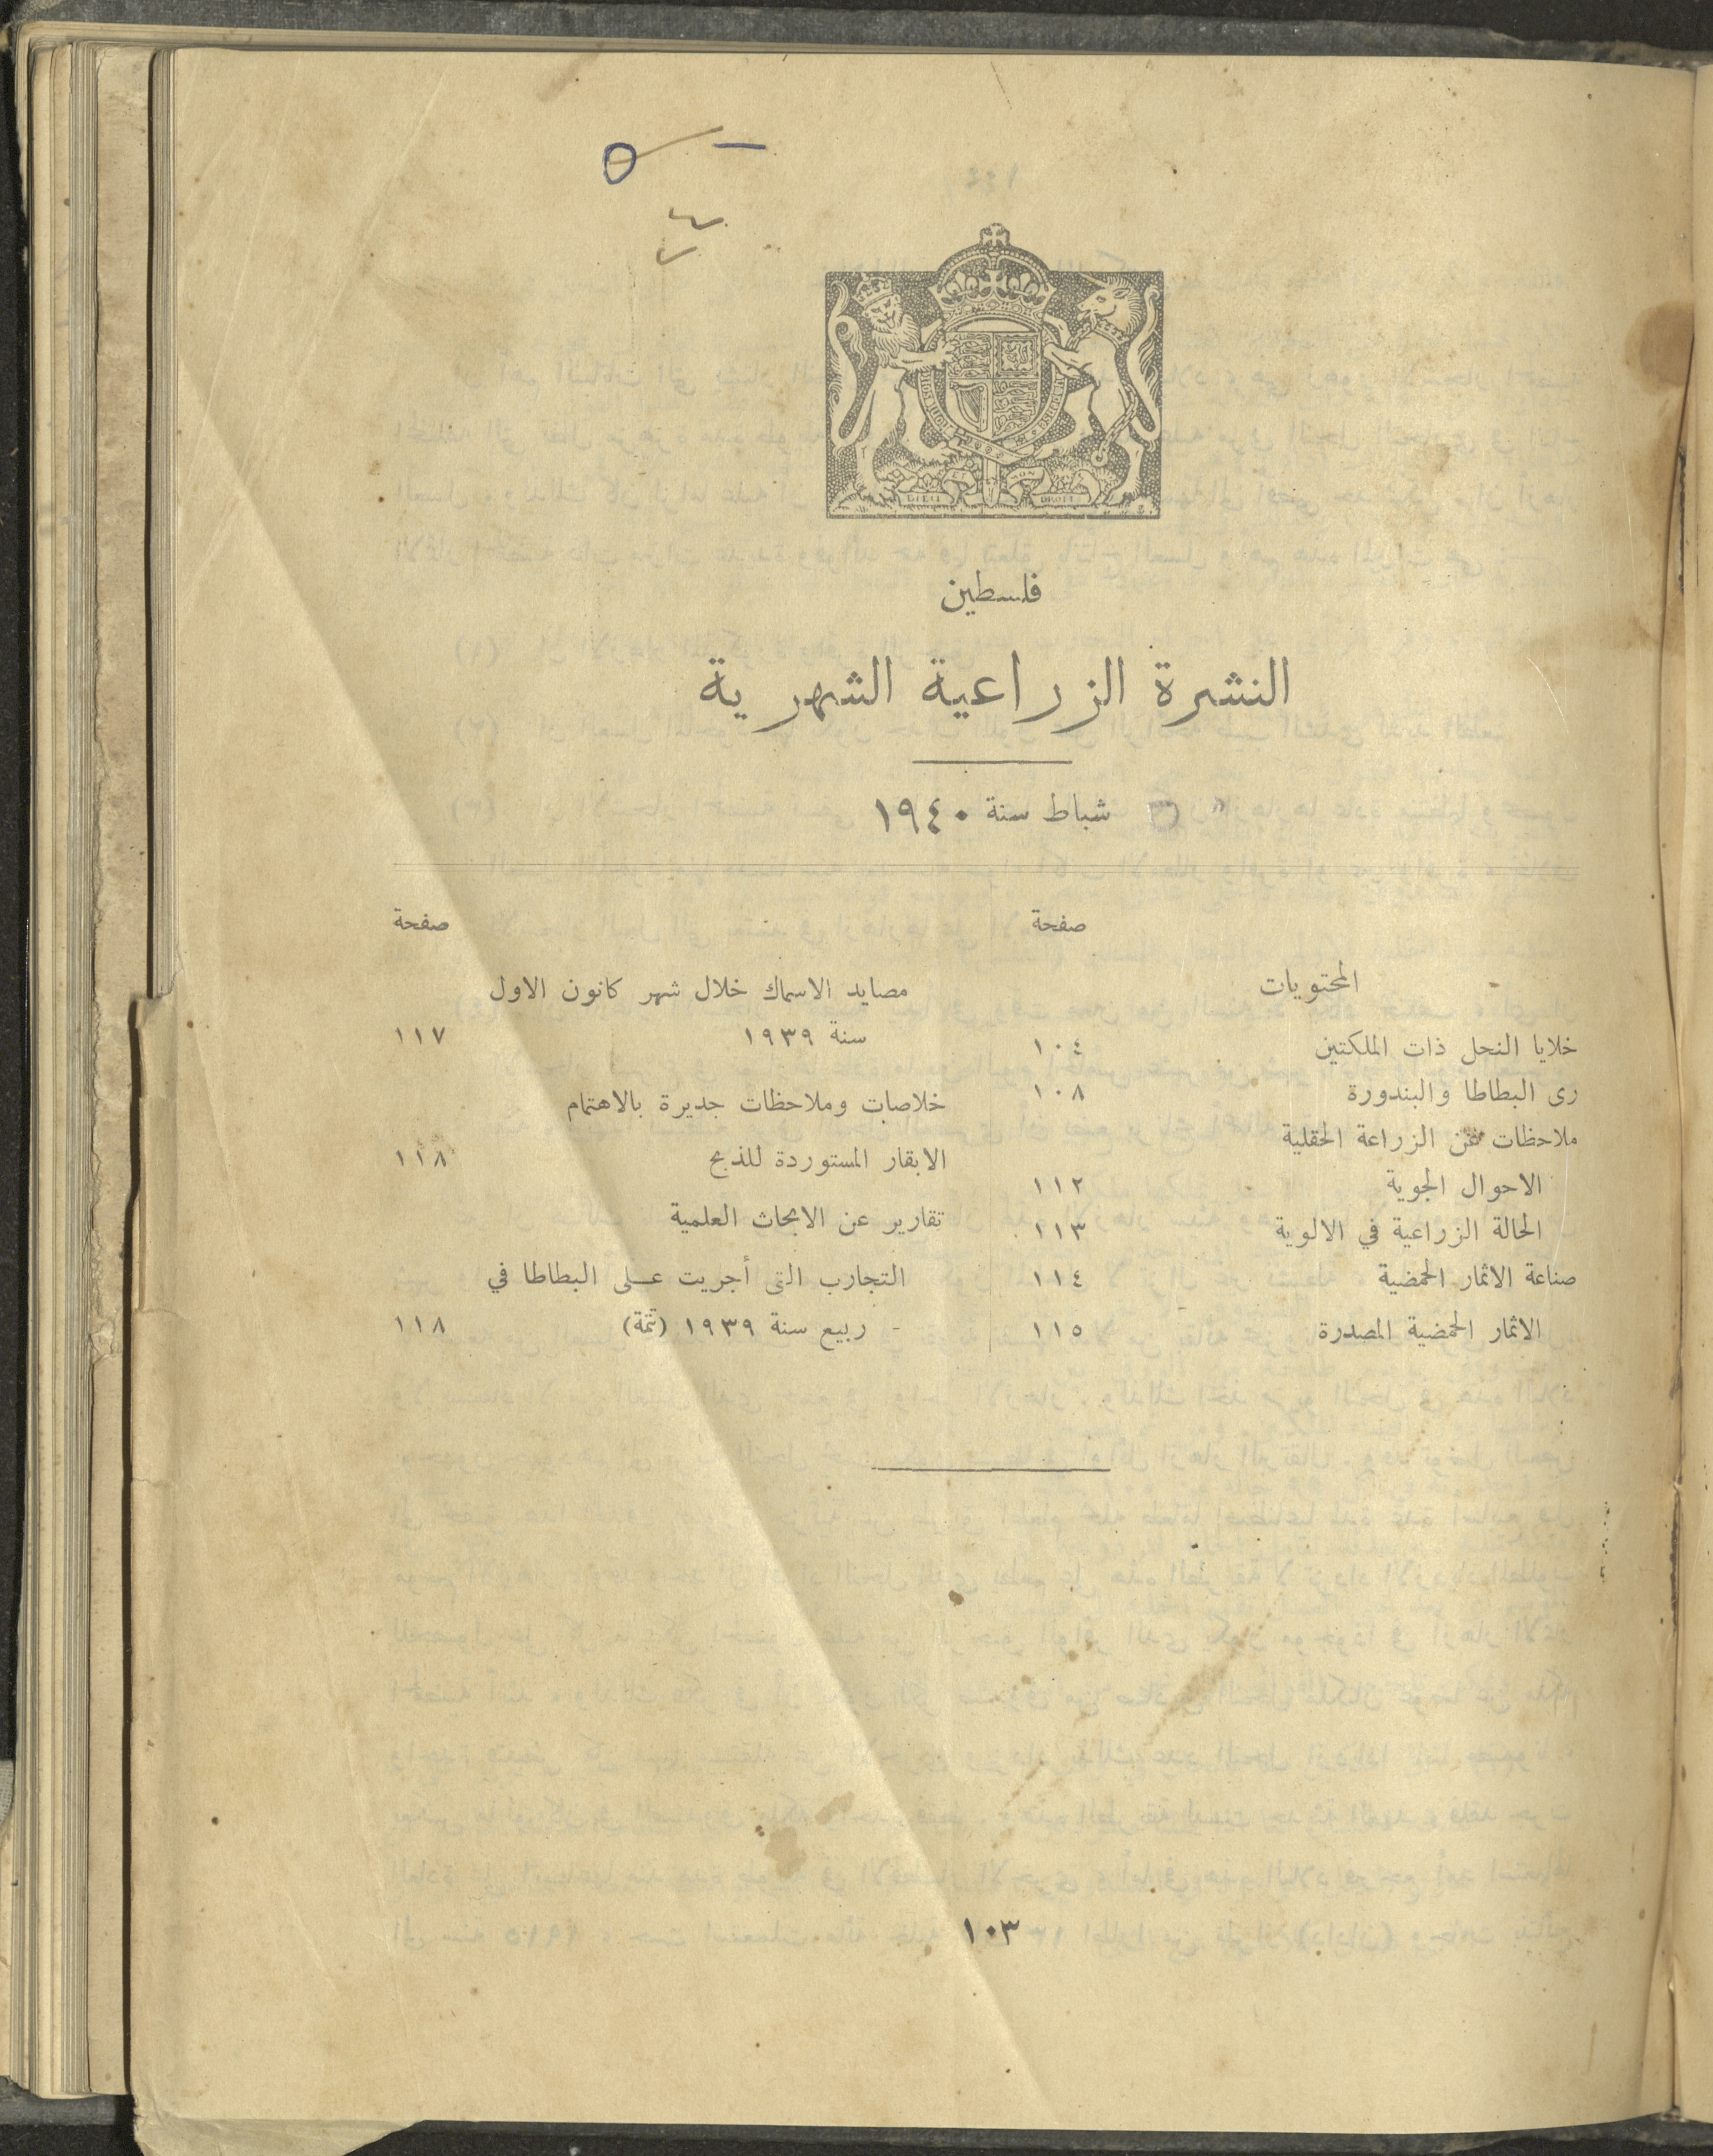 فلسطين
النشرة الزراعية الشهرية
شباط سنة ١٩٤٠
صفحة
المحتويات
خلايا النحل ذات الملكتين ١٠٤
رى البطاطا والبندورة ١٠٨
ملاحظات عن الزراعة الحقلية
الاحوال الجوية ١١٢
الحالة الزراعية في الالوية ١١٣
صناعة الاثمار الحمضية ١١٤
الاثمار الحمضية المصدرة ١١٥
صفحة
مصايد الاسماك خلال شهر كانون الاول
سنة ١٩٣٩ ١١٧
خلاصات وملاحظات جديرة بالاهتمام
الابقار المستوردة للذبح ١١٨
تقارير عن الابحاث العلمية
التجارب التى أجريت على البطاطا في
ربيع سنة ١٩٣٩ (تتمة) ١١٨
١٠٣